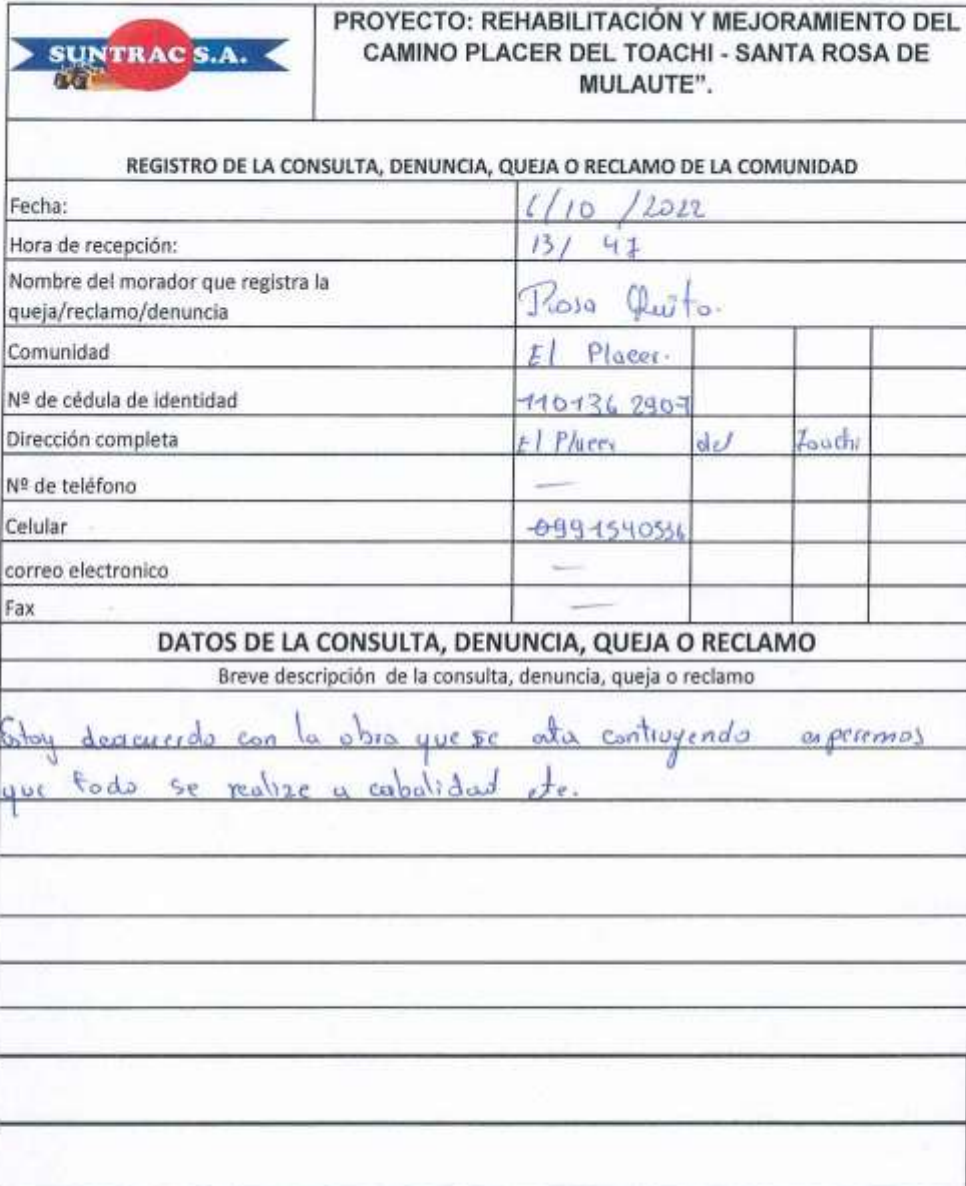 SUNTRAC S.A.
PROYECTO: REHABILITACIÓN Y MEJORAMIENTO DEL
CAMINO PLACER DEL TOACHI - SANTA ROSA DE
MULAUTE”.
REGISTRO DE LA CONSULTA, DENUNCIA, QUEJA O RECLAMO DE LA COMUNIDAD
Fecha: 6/10 /2022
Hora de recepción: 13/ 47
Nombre del morador que registra la
queja/reclamo/denuncia Rosa Quito.
Comunidad El Placer.
Nº de cédula de identidad 110136 2907
Dirección completa El Placer del Toachi
Nº de teléfono —
Celular 0991540536
correo electronico —
Fax —
DATOS DE LA CONSULTA, DENUNCIA, QUEJA O RECLAMO
Breve descripción de la consulta, denuncia, queja o reclamo
Estoy deacuerdo con la obra que se ata contruyendo esperemos
que todo se realize a cabalidad etc.